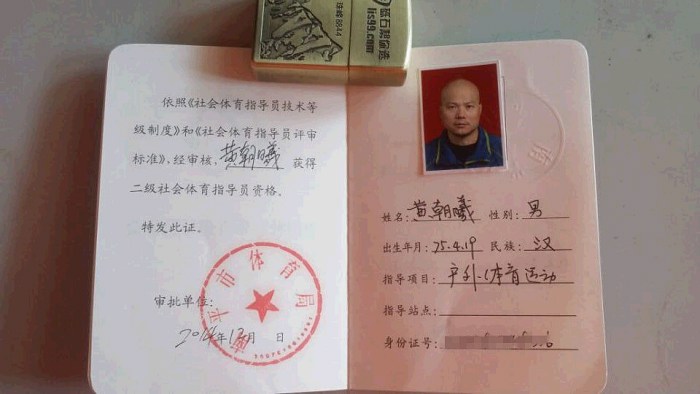 珠峰8844
磁石装备志
lis99.com
依照《社会体育指导员技术等
级制度》和《社会体育指导员评审
标准》,经审核,黄朝曦 获得
二级社会体育指导员资格。
特发此证。
审批单位:
2014年12月 日
南平市体育局
姓名:黄朝曦 性别:男
出生年月:75.4.19 民族:汉
指导项目:户外体育运动
指导站点:
身份证号: